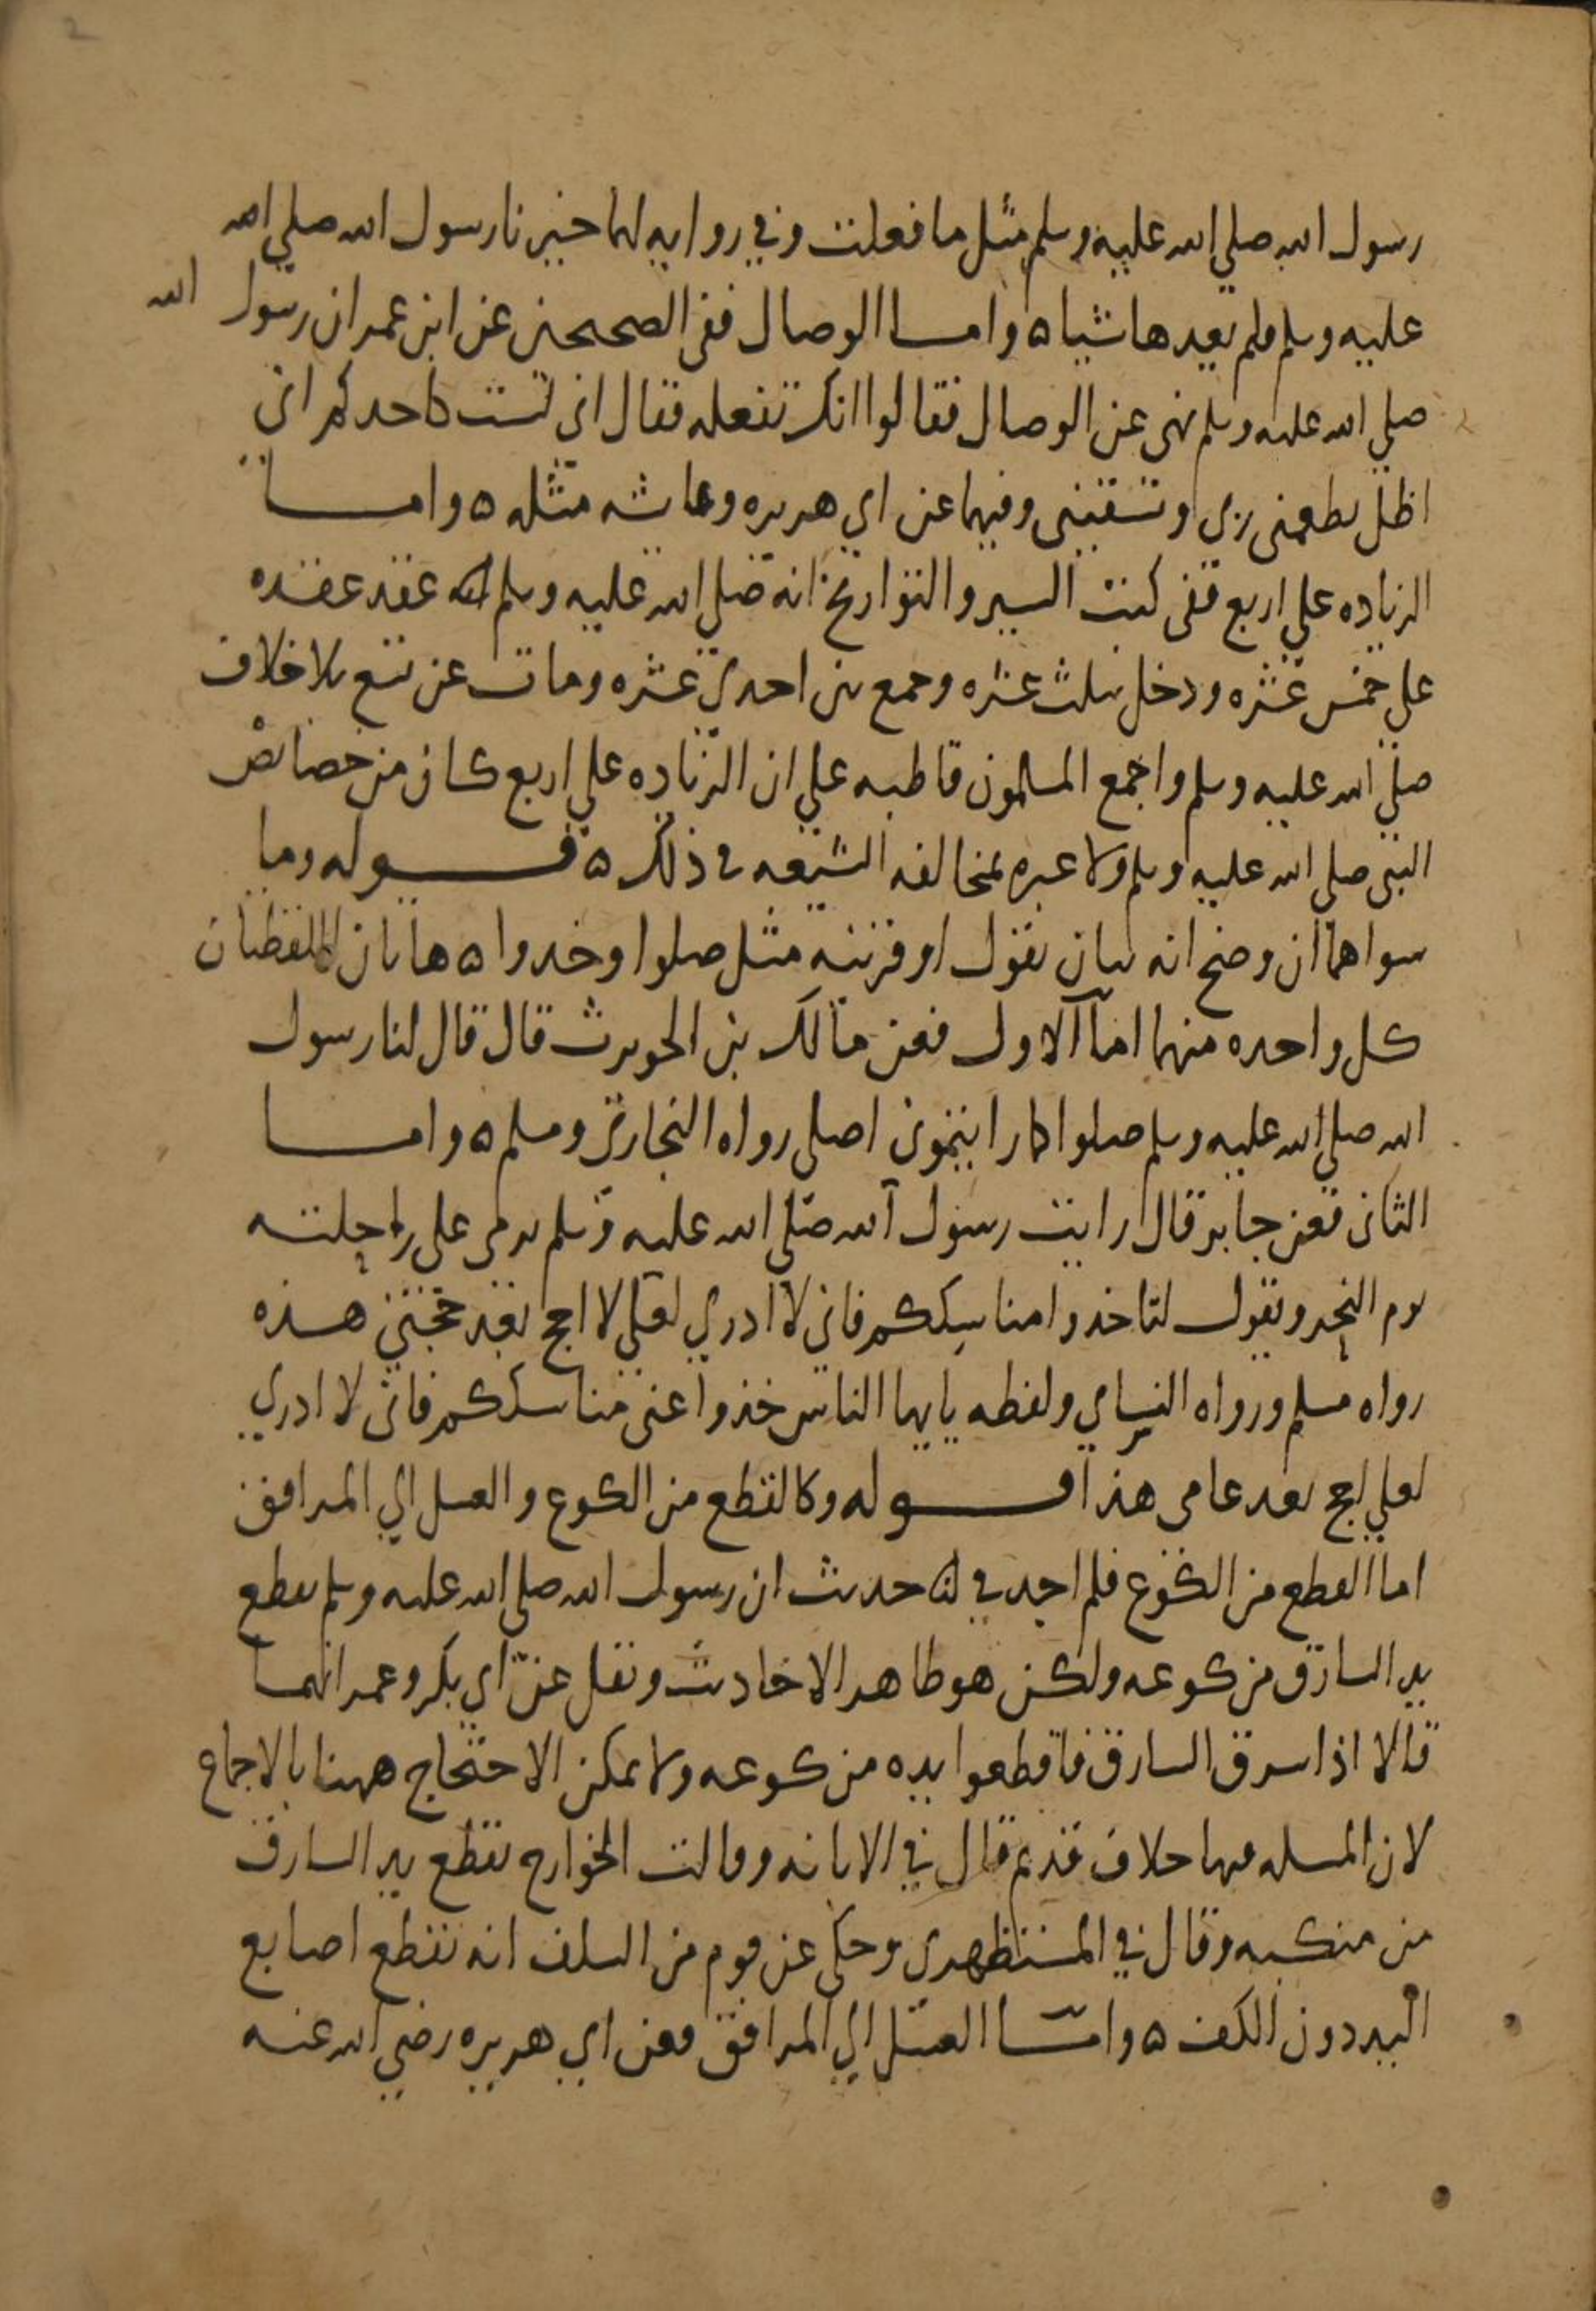 رسول الله صلي الله عليه وسلم مثل ما فعلت وفي روايه لهما خيرنا رسول الله صلي الله
عليه وسلم فلم يعدها شيا ه واما الوصال ففي الصحيحين عن ابن عمر ان رسول الله
صلي الله عليه وسلم نهى عن الوصال فقالوا انك تفعله فقال اني لست كاحدكم اني
اظل يطعمني ربي ويسقيني وفيهما عن ابي هريره وعايشه مثله ه واما
الزياده علي اربع ففي كتب السير والتواريخ انه صلي الله عليه وسلم عقد عقده
علي خمس عشره ودخل بثلث عشره وجمع بين احدي عشره ومات عن تسع بلا خلاف
صلي الله عليه وسلم واجمع المسلمون قاطبه علي ان الزياده علي اربع كان من خصايص
النبي صلي الله عليه وسلم ولا عبره بمخالفه الشيعه في ذلك ه قوله وما
سواهما ان وضح انه بيان بقول او قرينه مثل صلوا وخدوا ه هاتان اللفظتان
كل واحده منهما اما الاول فعن مالك بن الحويرث قال قال لنا رسول
الله صلي الله عليه وسلم صلوا كما رايتموني اصلي رواه البخاري ومسلم ه واما
الثاني فعن جابر قال رايت رسول الله صلي الله عليه وسلم يرمي علي راحلته
يوم النحر ويقول لتاخدوا مناسككم فاني لا ادري لعلي لا احج بعد حجتي هذه
رواه مسلم ورواه النساي ولفظه يايها الناس خذوا عني مناسككم فاني لا ادري
لعلي لا حج بعد عامي هذا قوله وكالقطع من الكوع والغسل الي المرافق
اما القطع من الكوع فلم اجد في حديث ان رسول الله صلي الله عليه وسلم يقطع
يد السارق من كوعه ولكن هو ظاهر الاحاديث ونقل عن ابي بكر وعمر انهما
قالا اذا سرق السارق فاقطعوا يده من كوعه ولا يمكن الاحتجاج ههنا بالاجماع
لان المسله فيها خلاف قديم قال في الابانه وقالت الخوارج يقطع يد السارق
من منكبه وقال في المستظهري وحكي عن قوم من السلف انه تقطع اصابع
اليد دون الكف ه واما الغسل الي المرافق فعن ابي هريره رضي الله عنه